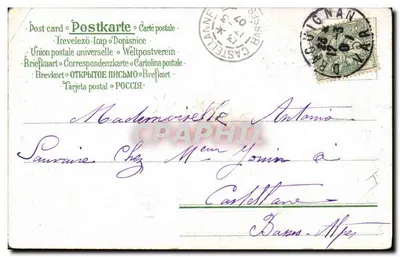 Post card Postkarte Carte postale
Levelező-Lap Dopisnice
Union postale universelle Weltpostverein
Briefkaart Correspondenzkarte Cartolina postale
Brevkort ОТКРЫТОЕ ПИСЬМО Brefkort
Tarjeta postal РОССІЯ
CASTELLANNE
DRAGUIGNAN
VAR
Mademoiselle Antonia
Sauvaire Chez Mme Jouin à
Castellane
Basses-Alpes